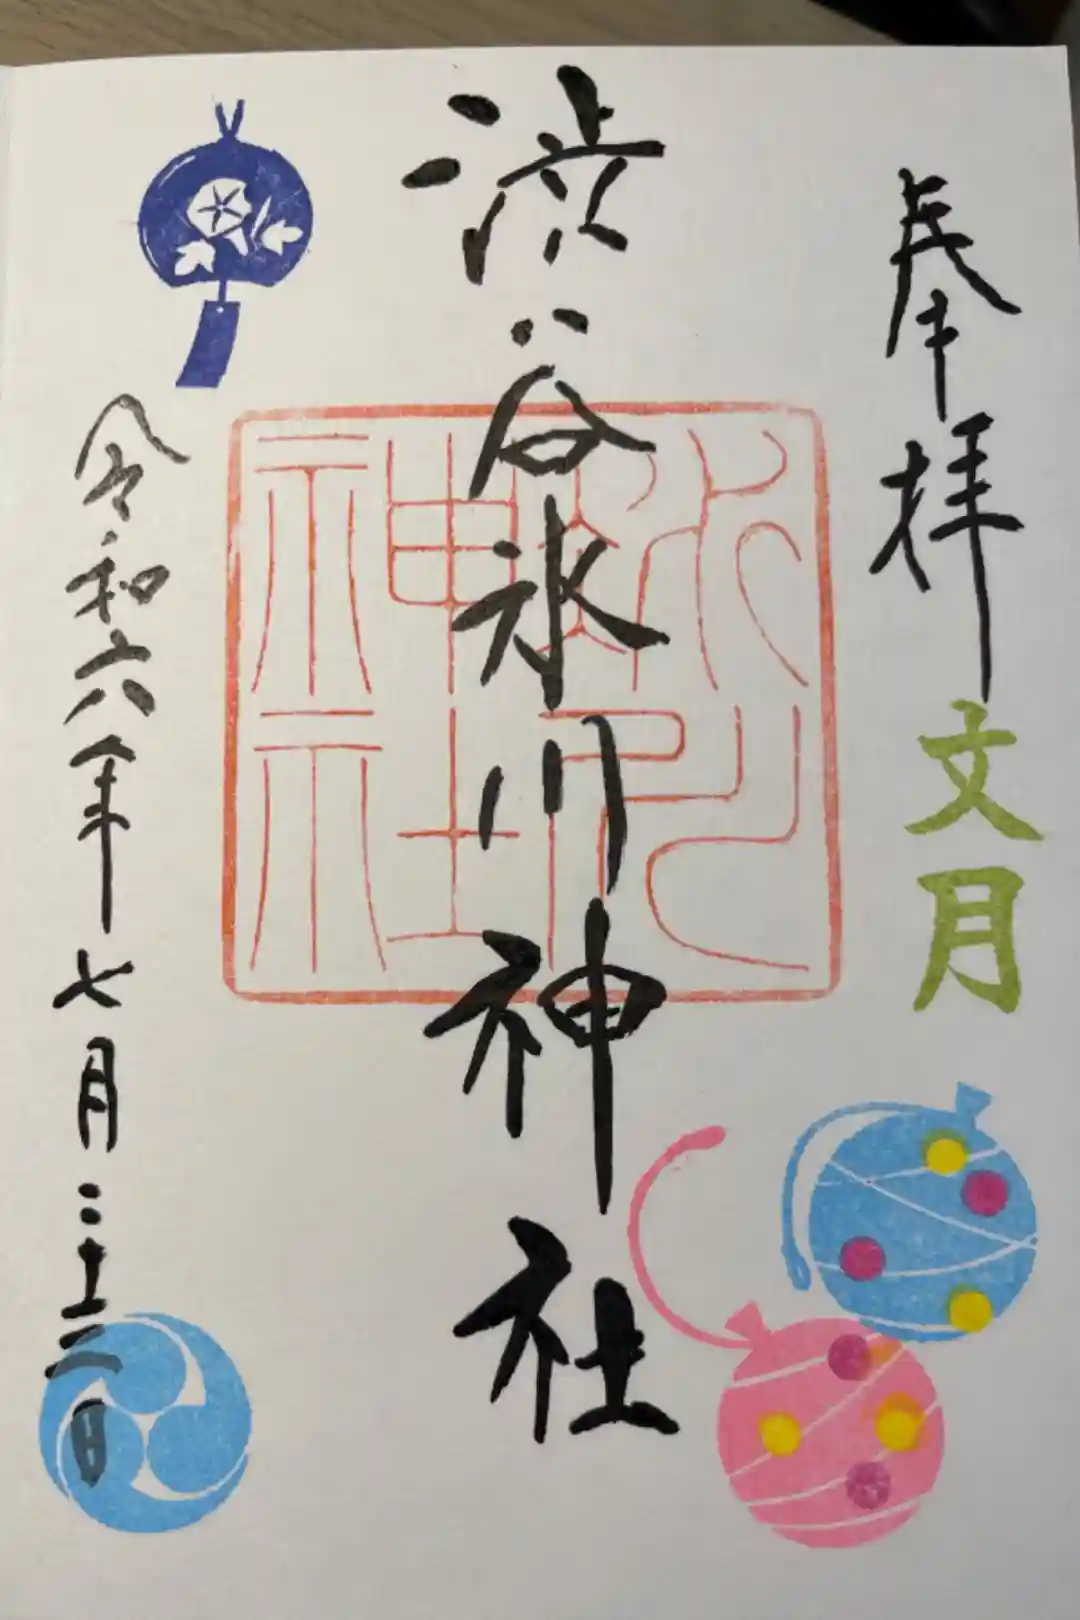 奉拝
文月
渋谷氷川神社
氷川
神社
令和六年七月二十三日